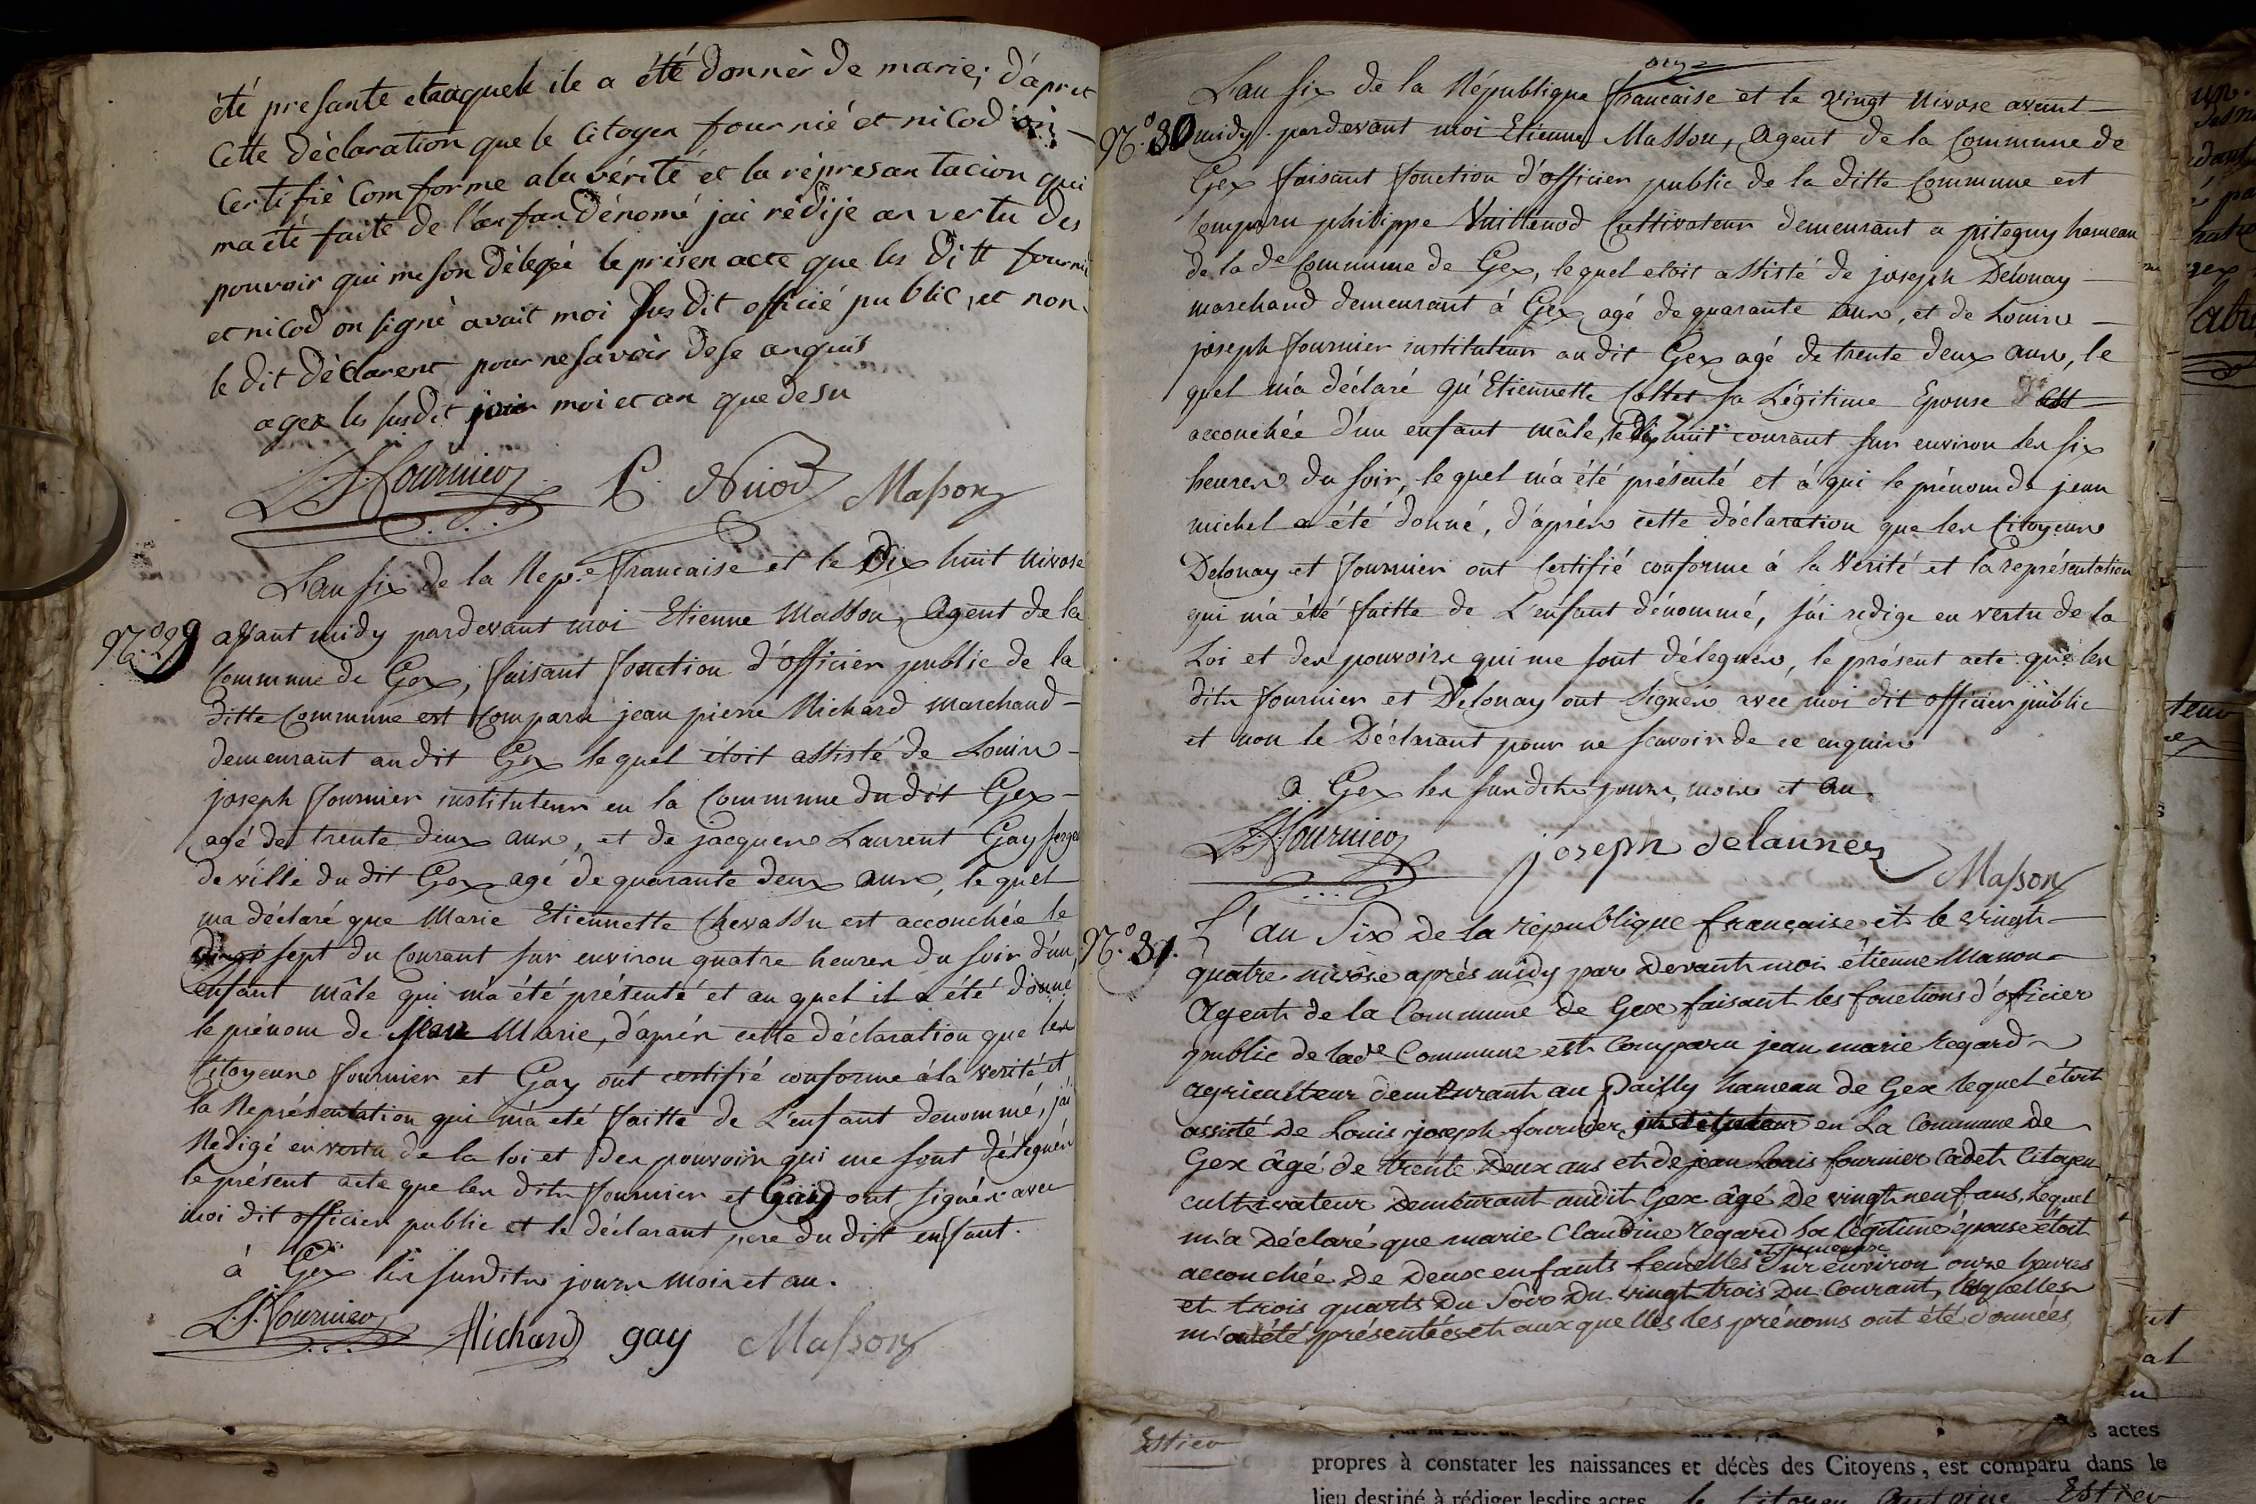 été presante etauquele ile a été donnèr de marie; d'apret
Cette dèclaration que le Citoyen fournié et nicod on
Certifiè Comforme ala vérité et la représantacion qui
ma été faite de l'anfan dénomé jai rèdije an vertu des
pouvoir qui me son dèlegéè le présen acte que les ditt fournié
et nicod on signè avait moi susdit officié public, et non
le dit dèclarent pour ne savoir de se anquis
a gex les susdit jour moi et an que desu
L.J. Fournier P. Nicod Masson
L'an six de la Rep.e francaise et le Dix huit Nivose
N.o 29 avant midy pardevant moi Etienne Masson, Agent de la
Commune de Gex, faisant fonction d'officier public de la
ditte Commune est Comparu jean pierre Richard marchand
demeurant au dit Gex lequel étoit assisté de Louis
joseph fournier instituteur en la Commune du dit Gex
agé de trente deux ans, et de jacques Laurent Gay serger
de ville du dit Gex agé de quarante deux ans, le quel
ma déclaré que Marie Etiennette Chevassu est accouchée le
sept du Courant sur environ quatre heures du soir d'un
enfant mâle qui m'a été présenté et au quel il a été donné
le prénom de Marie, d'après cette déclaration que les
Citoyens fournier et Gay ont certifié conforme à la verité et
la Représentation qui m'a eté faitte de L'enfant denommé, j'ai
Redigé en vertu de la loi et des pouvoirs qui me sont délégués
le présent acte que les dits fournier et Gay ont signés avec
moi dit officier public et le déclarant pere du dit enfant.
à Gex les susdits jours mois et an.
L.J. Fournier Richard gay Masson
L'an six de la République francaise et le vingt Nivose avant
N.o 30 midy pardevant moi Etienne Masson, Agent de la Commune de
Gex faisant fonction d'officier public de la ditte Commune est
Comparu philippe Vuillenod Cultivateur demeurant a pitegny hameau
de la d.e Commune de Gex, lequel etoit assisté de joseph Delonay
marchand demeurant à Gex agé de quarante ans, et de Louis
joseph fournier instituteur au dit Gex agé de trente deux ans, le
quel m'a déclaré qu'Etiennette Coltet sa Légitime Epouse est
accouchée d'un enfant mâle, le Dix huit courant sur environ les six
heures du soir, le quel m'a été présenté et à qui le prénom de jean
michel a été donné, d'après cette déclaration que les Citoyens
Delonay et fournier ont Certifié conforme à la Vérité et la représentation
qui m'a été faitte de L'enfant dénommé, j'ai redige en vertu de la
Loi et des pouvoirs qui me sont délegués, le présent acte que les
dits fournier et Delonay ont signés avec moi dit officier public
et non le Déclarant pour ne scavoir de ce enquis
a Gex les susdits jours, mois et an
L.J. Fournier joseph delauney Masson
L'an Six de la république française et le vingt
N.o 31. quatre nivôse après midy par devant moi étienne Masson
Agent de la Commune de Gex faisant les fonctions d'officier
public de lade Commune est Comparu jean marie regard
agriculteur demeurant au pailly hameau de Gex lequel étoit
assisté de Louis joseph fournier instituteur en La Commune de
Gex âgé de trente deux ans et de jean Louis fournier Cadet Citoyen
cultivateur demeurant audit Gex âgé de vingt neuf ans, Lequel
m'a déclaré que marie Claudine regard sa légitime épouse étoit
accouchée de deux enfants femelles et jumeaux sur environ onze heures
et trois quarts du soir du vingt trois du Courant, lesquelles
m'ont été présentées et aux quelles les prénoms ont été données
Estier
actes
propres à constater les naissances et décès des Citoyens, est comparu dans le
lieu destiné à rédiger lesdits actes le Citoyen Antoine Estier